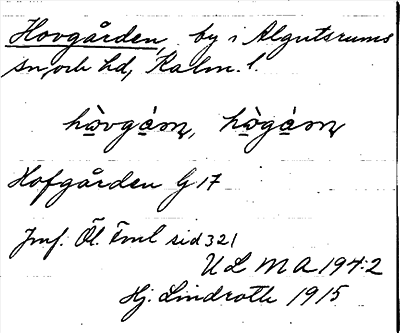 Hovgården, by i Algutsrums
sn och hd, Kalm. l.
Hofgården G 17
Jmf. Öl. Fml sid 321
ULMA 194:2
Hj. Lindroth 1915